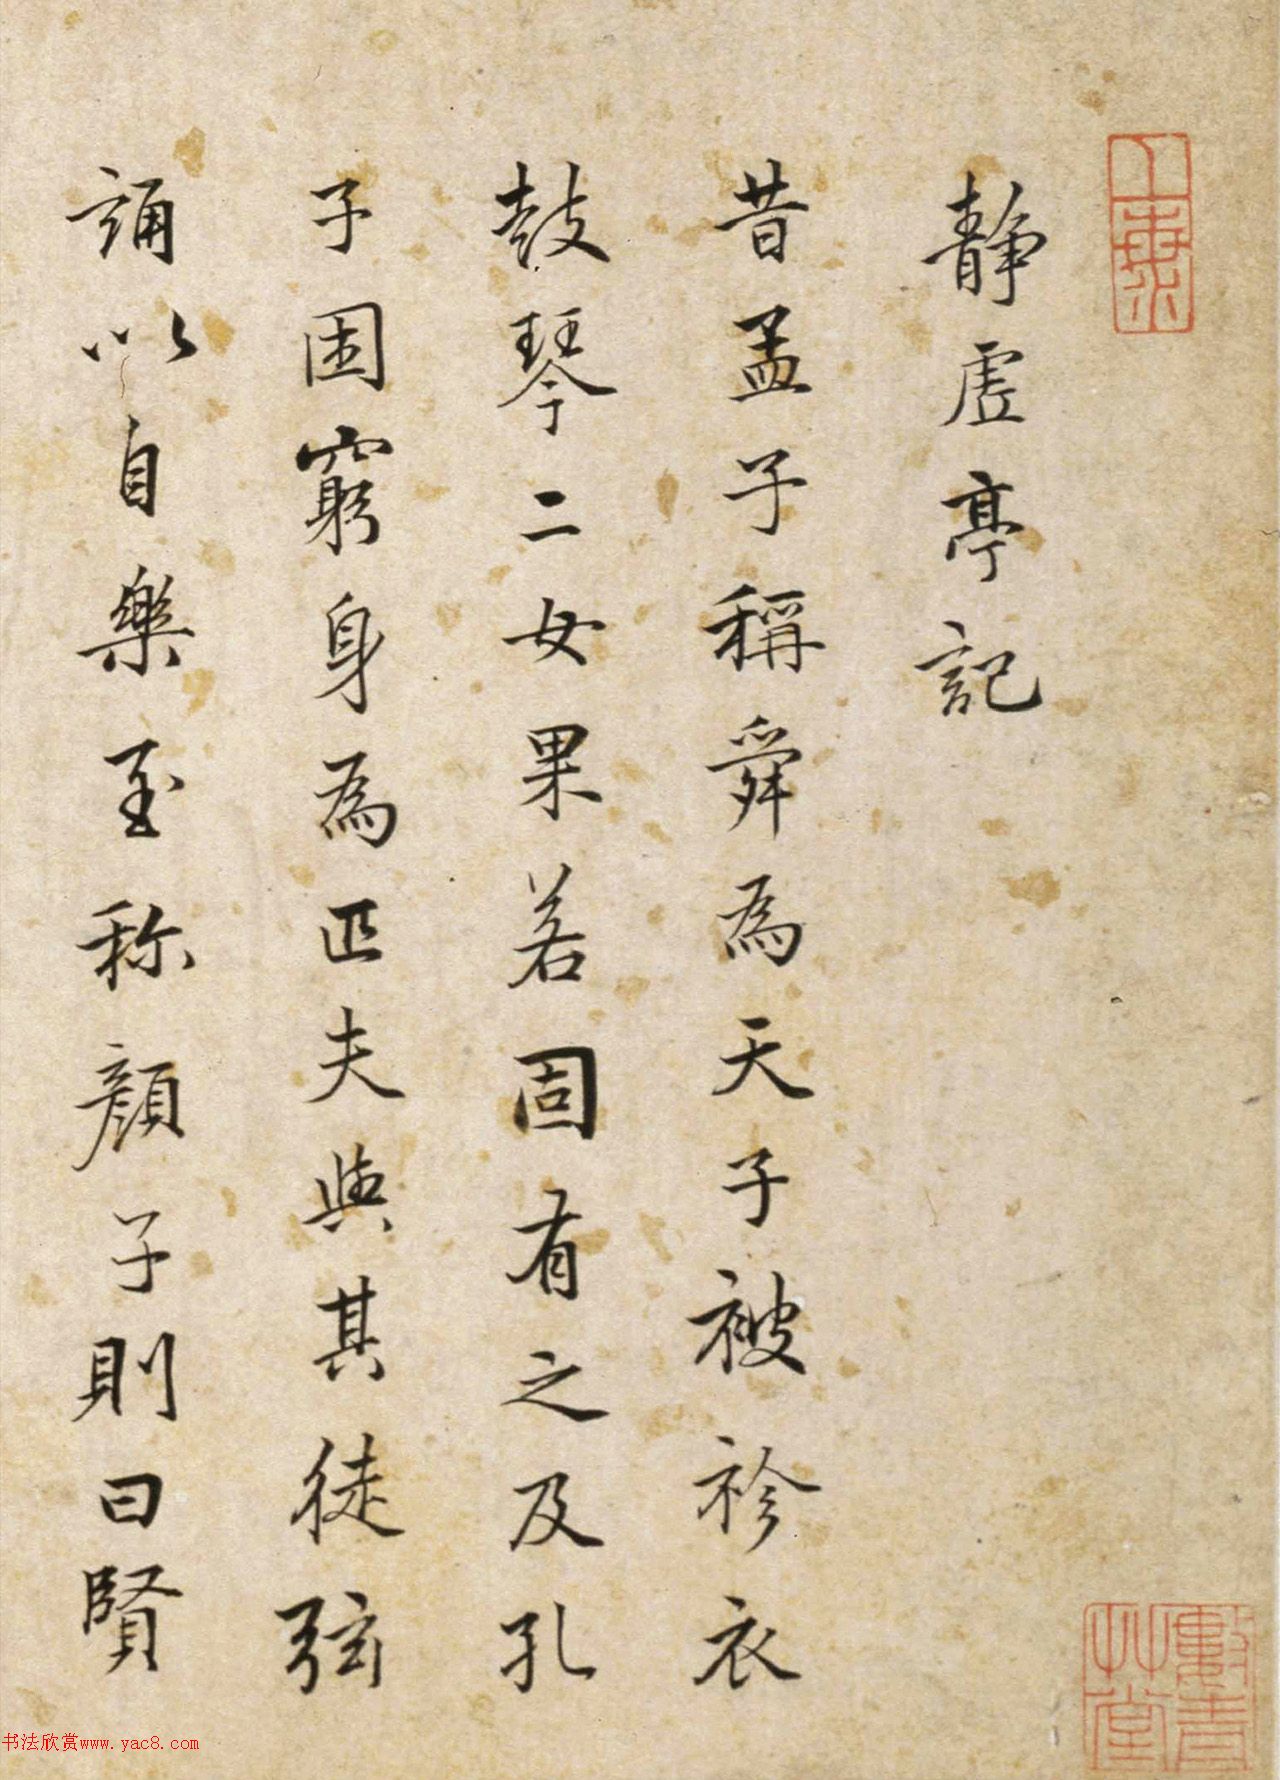 靜虛亭記
昔孟子稱舜為天子被袗衣
鼓琴二女果若固有之及孔
子困窮身為匹夫與其徒弦
誦以自樂至称顏子則曰賢
书法欣赏www.yac8.com